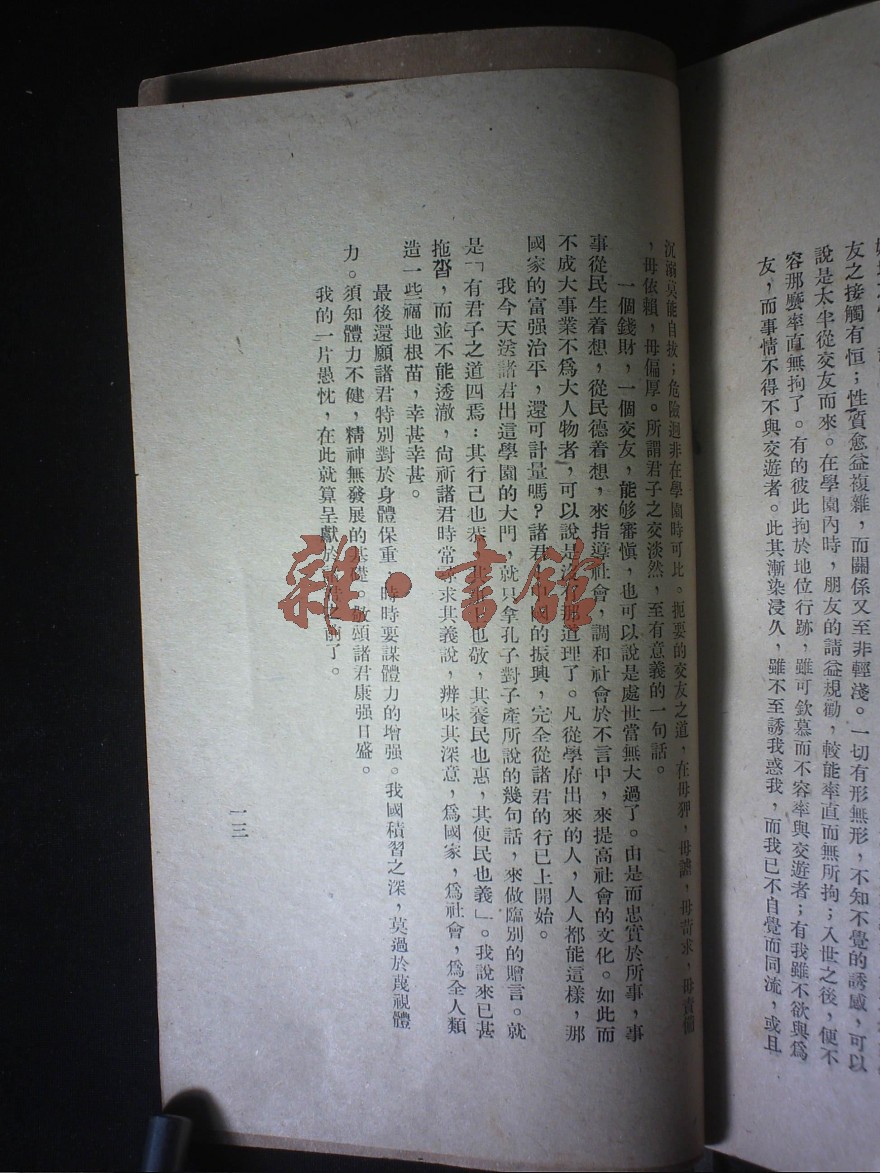 友之接觸有恒；性質愈益複雜，而關係又至非輕淺。一切有形無形，不知不覺的誘感，可以
說是太半從交友而來。在學園內時，朋友的請益規勸，較能率直而無所拘；入世之後，便不
容那麼率直無拘了。有的彼此拘於地位行跡，雖可欽慕而不容率與交遊者；有我雖不欲與爲
友，而事情不得不與交遊者。此其漸染浸久，雖不至誘我惑我，而我已不自覺而同流，或且
沉湎莫能自拔；危險迥非在學園時可比。扼要的交友之道，在毋狎，毋謔，毋苛求，毋責備
，毋依賴，毋偏厚。所謂君子之交淡然，至有意義的一句話。
一個錢財，一個交友，能够審愼，也可以說是處世當無大過了。由是而忠實於所事，事
事從民生着想，從民德着想，來指導社會，調和社會於不言中，來提高社會的文化。如此而
不成大事業不爲大人物者，可以說是沒有那道理了。凡從學府出來的人，人人都能這樣，那
國家的富强治平，還可計量嗎？諸君！中國的振興，完全從諸君的行已上開始。
我今天送諸君出這學園的大門，就只拿孔子對子產所說的幾句話，來做臨別的贈言。就
是「有君子之道四焉：其行己也恭，其事上也敬，其養民也惠，其使民也義」。我說來已甚
拖沓，而並不能透澈，尙祈諸君時常求其義說，辨味其深意，爲國家，爲社會，爲全人類
造一些福地根苗，幸甚幸甚。
最後還願諸君特別對於身體保重 時時要謀體力的增强。我國積習之深，莫過於蔑視體
力。須知體力不健，精神無發展的基礎。敬頌諸君康强日盛。
我的一片愚忱，在此就算呈獻於前了。
一三
雜·書館